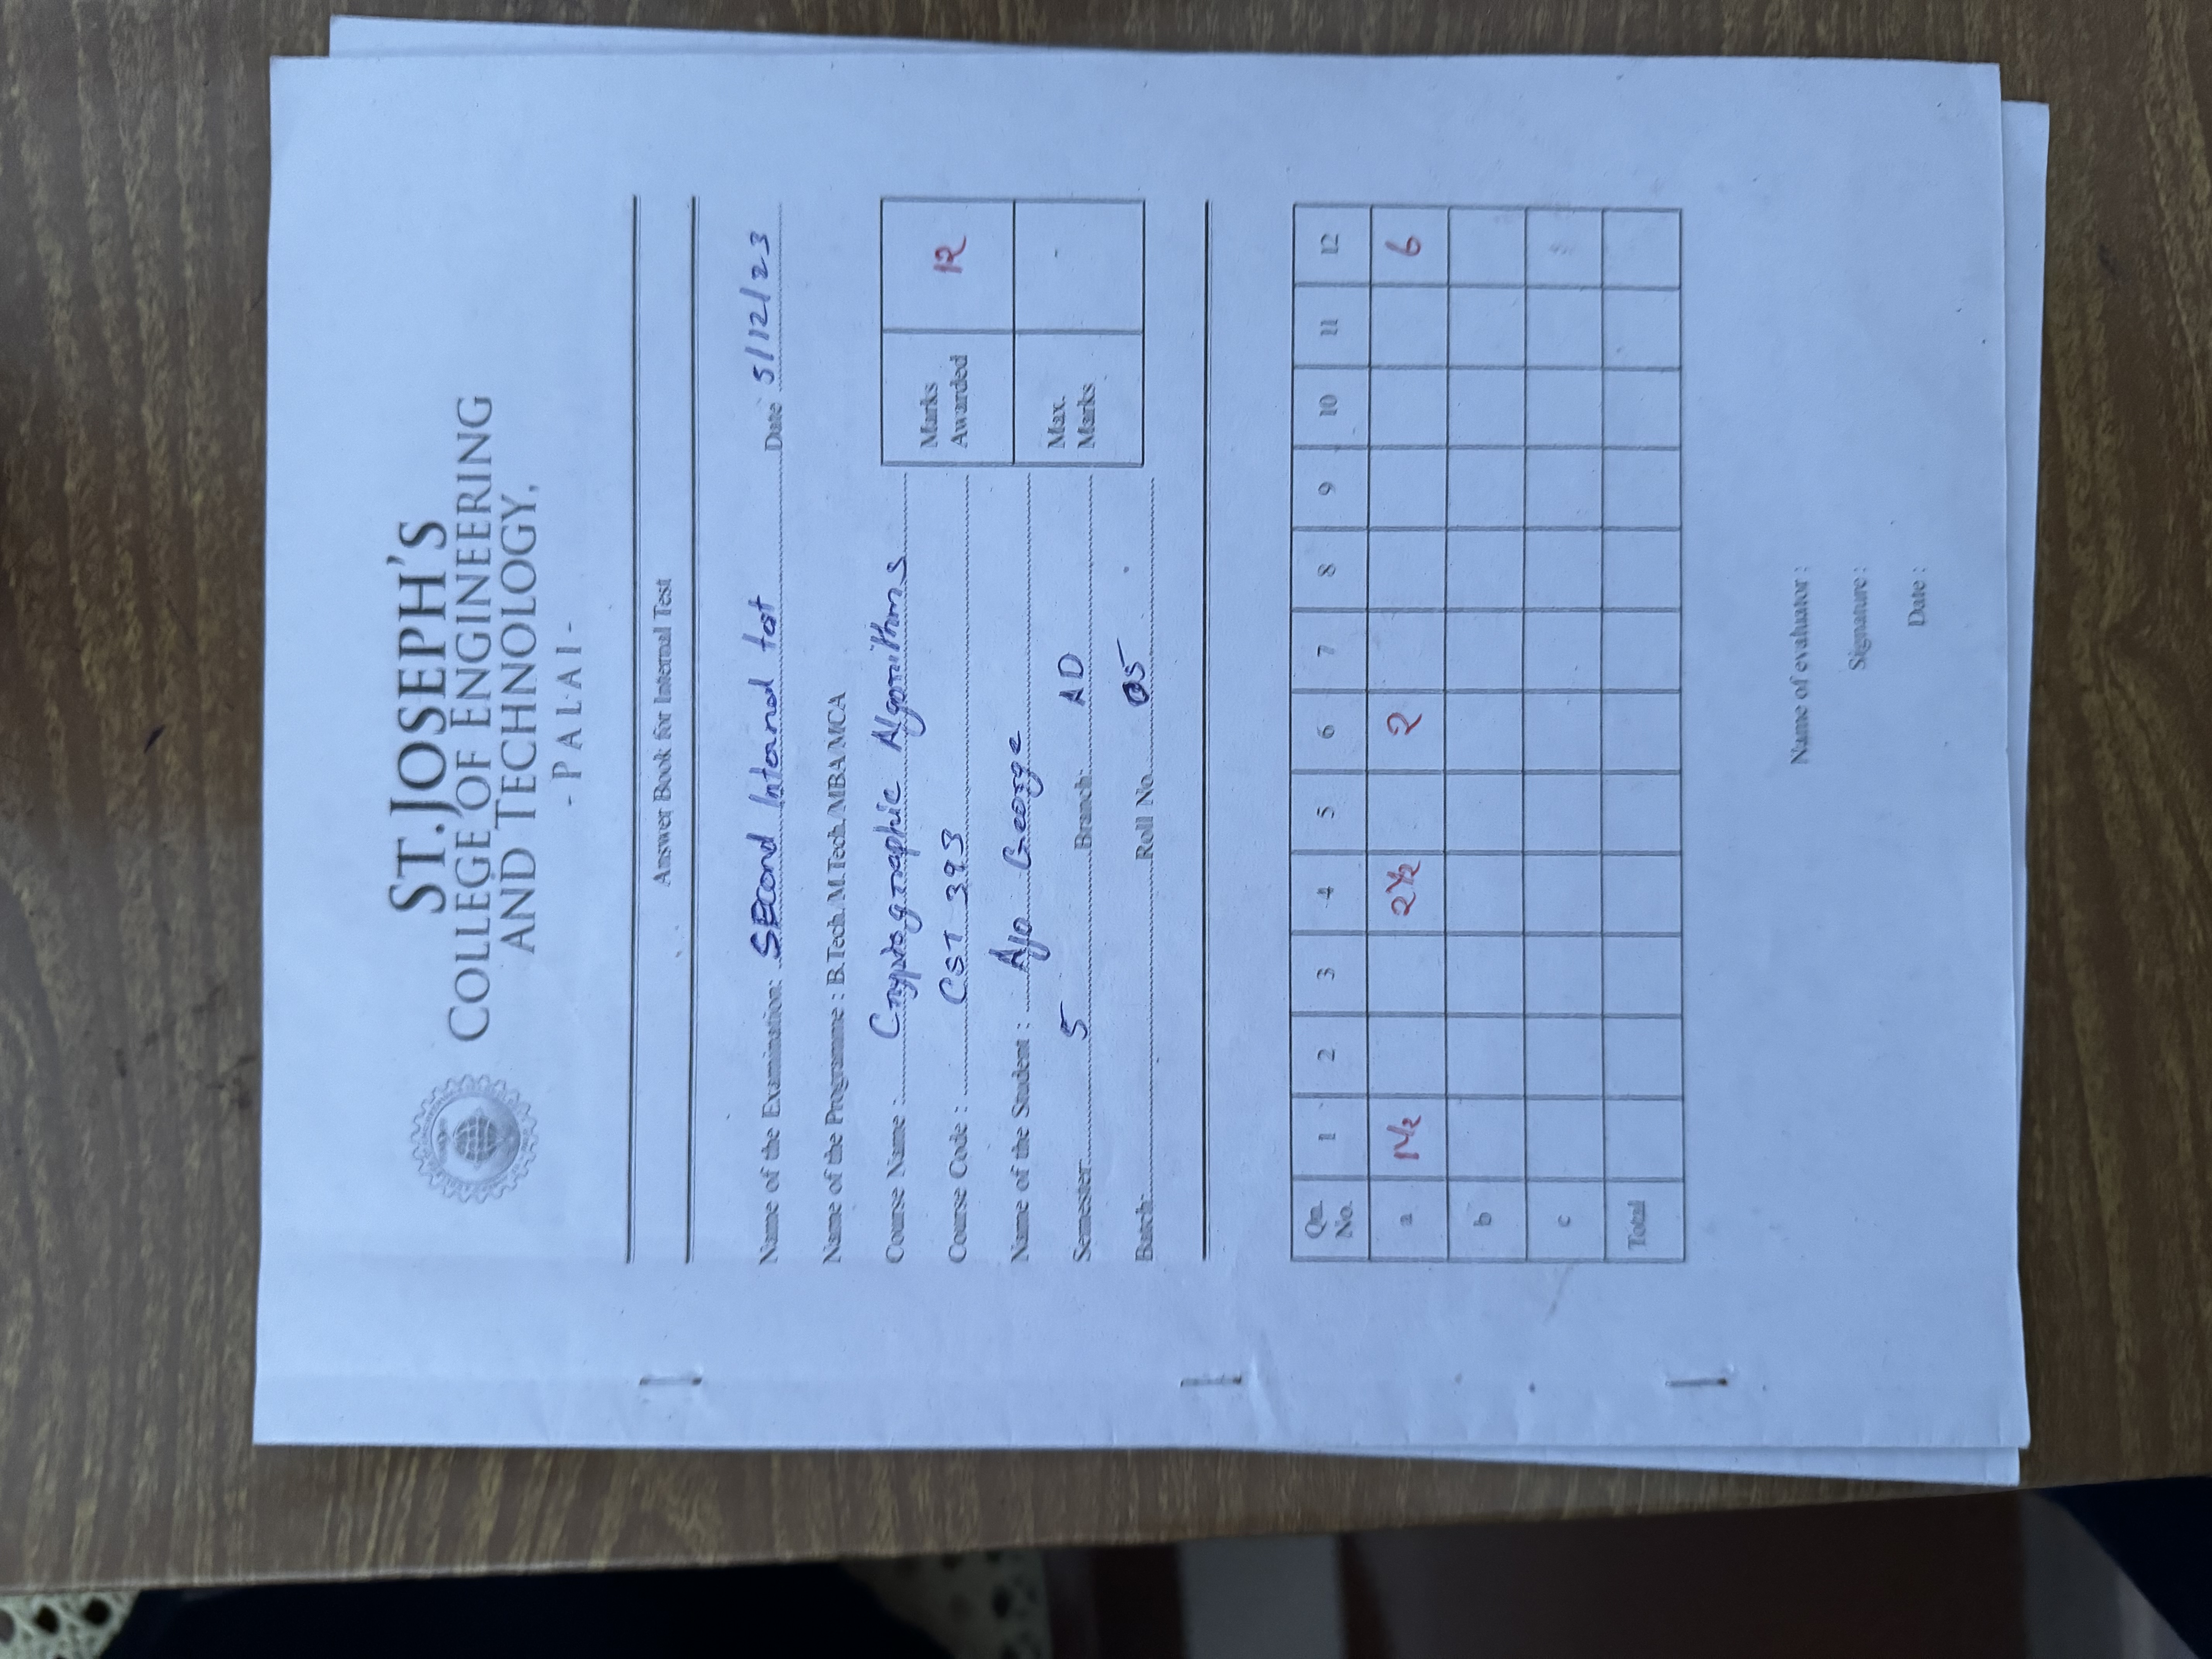 ST.JOSEPH'S
COLLEGE OF ENGINEERING
AND TECHNOLOGY,
- PALAI -
Answer Book for Internal Test
Name of the Examination: SECond Internal test Date 5/12/23
Name of the Programme : B.Tech./M.Tech./MBA/MCA
Course Name : Cryptographic Algorithms
Course Code : CST 393
Name of the Student : Ajo George
Semester: 5 Branch: AD
Batch: Roll No. 05
Marks Awarded 12
Max. Marks -
Qn. No. 1 2 3 4 5 6 7 8 9 10 11 12
a 1½ 2½ 2 6
b
c
Total
Name of evaluator :
Signature :
Date :